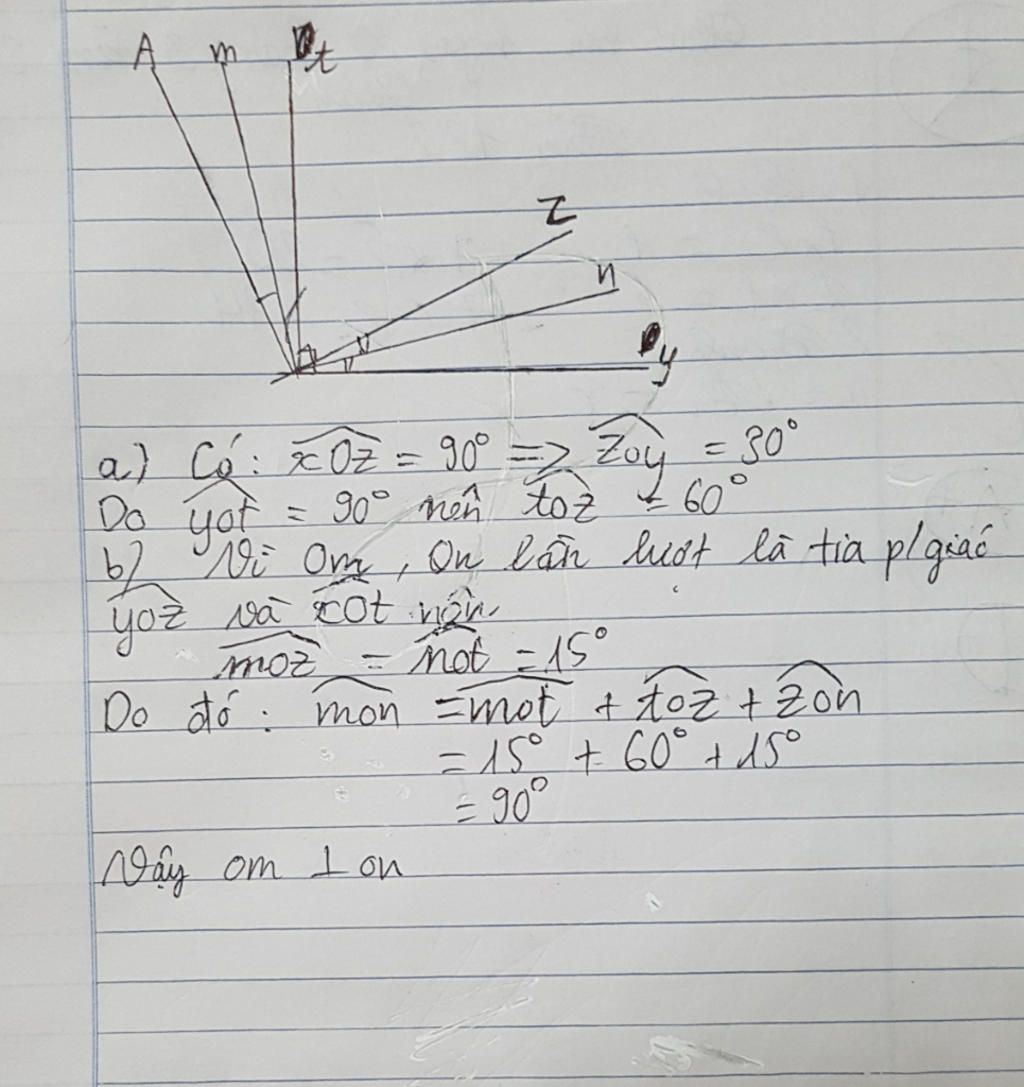 A m t
z
n
y
a) Có: xOz = 90° => zoy = 30°
Do yot = 90° nên toz = 60°
b) Vì Om, On lần lượt là tia p/giác
yoz và xOt nên
moz = not = 15°
Do đó: mon = mot + toz + zon
= 15° + 60° + 15°
= 90°
Vậy om ⊥ on